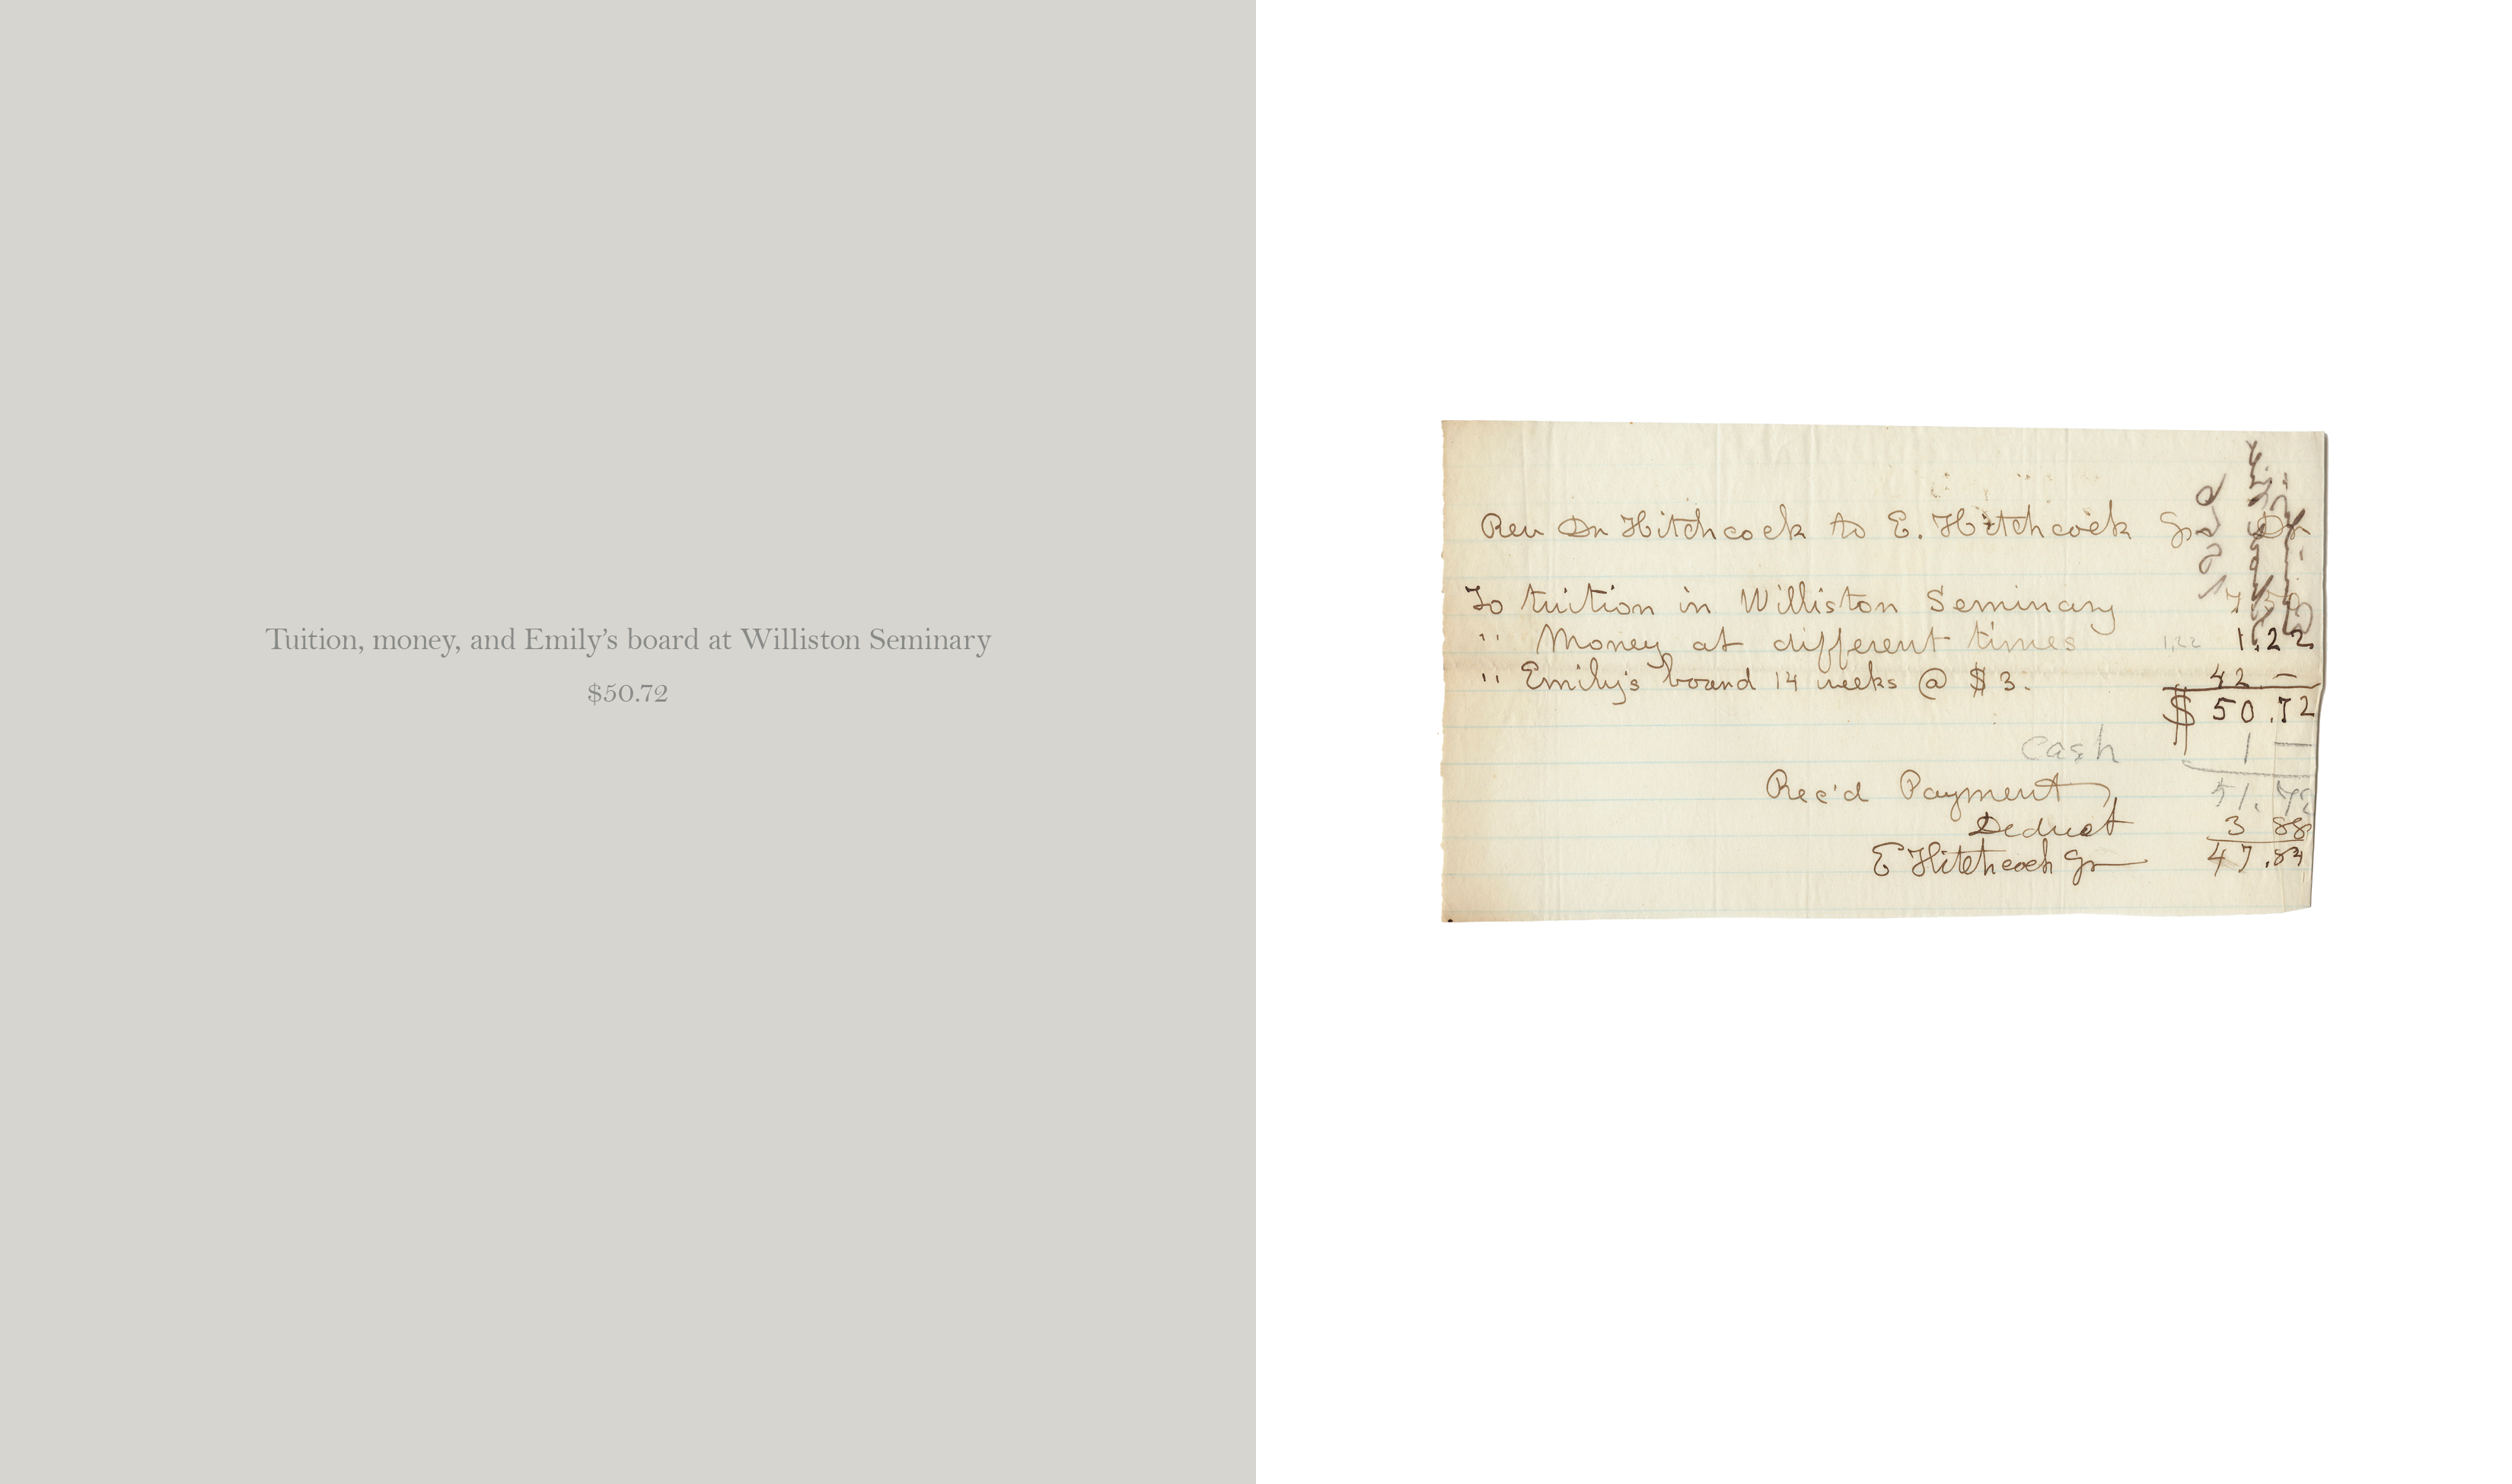 Tuition, money, and Emily’s board at Williston Seminary
$50.72
Rev Dr Hitchcock to E. Hitchcock Jr Dr
To tuition in Williston Seminary 7.50
" Money at different times 1,22 1.22
" Emily's board 14 weeks @ $3. 42 —
$ 50.72
Cash 1 —
Rec'd Payment 51.72
Deduct 3 88
E Hitchcock Jr 47.84